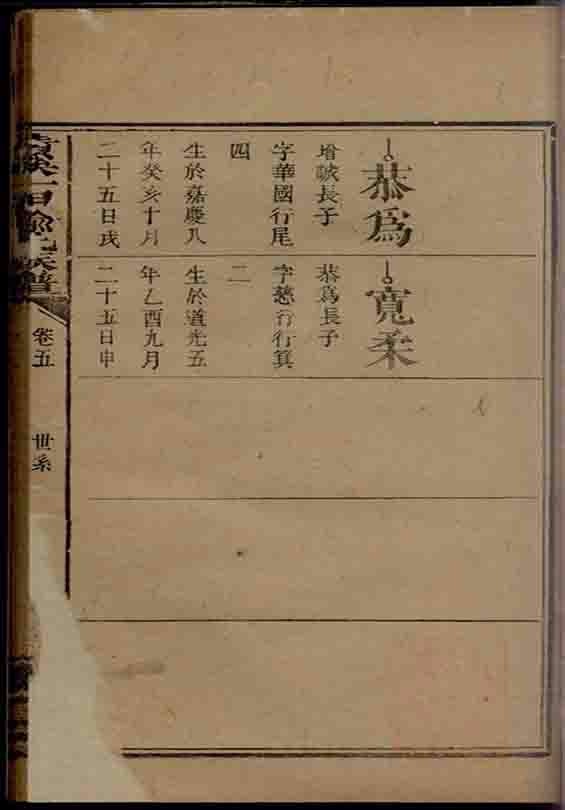 恭為
增誠長子
字華國行尾
四
生於嘉慶八
年癸亥十月
二十五日戌
寬柔
恭為長子
字慈行行箕
二
生於道光五
年乙酉九月
二十五日申
族譜
卷五
世系